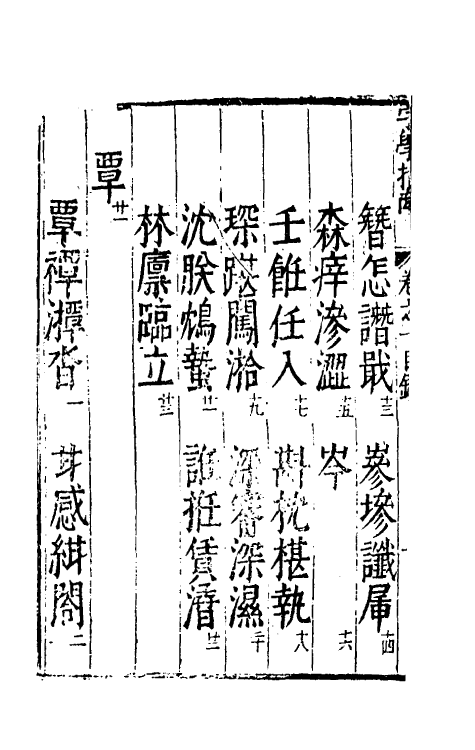 字學指南 卷之一目錄
簪怎譖戢十三 㕘墋讖届十四
森痒滲澀十五 岑十六
壬飪任入十七 枕椹執十八
琛踸闖湁十九 深審深濕二十
沈朕鴆蟄廿一 誰賃廿二
林廩臨立廿三
覃廿一
覃禫潭沓一 感紺閤二